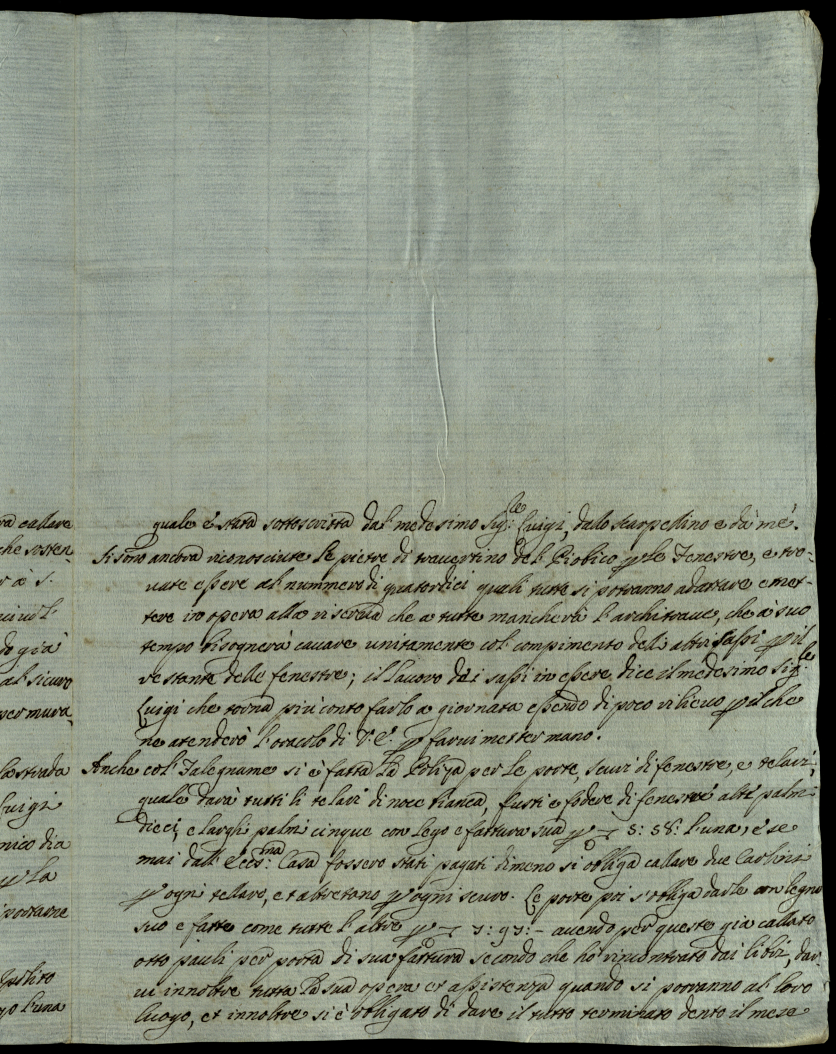 ra callare
che sosten-
r à S.
do già
al sicuro
per mura-
la strada
Luigi
mico dia
p la
portarne
Ipolito
go l'una
quale è stata sottoscritta dal medesimo Sig:le Luigi, dallo scarpellino e da mé.
Si sono ancora riconosciute le pietre di travertino del p le Fenestre, e tro-
vate essere al nummero di quatordici quali tutte si potranno adattare e met-
tere in opera alla riserva che a tutte mancherà l'architrave, che à suo
tempo bisognerà cavare unitamente col compimento delli altri sassi p il
restante delle fenestre; il lavoro dei sassi in essere dice il medesimo Sig:le
Luigi che torna più conto farlo a giornata essendo di poco rilievo p il che
ne atenderò l'oracolo di V. E. p farvi metter mano.
Anche col Falegname si è fatta la Poliza per le porte, scuri di fenestre, e telari,
quale darà tutti li telari di noce bianca, fusti e fodere di fenestre alti palmi
dieci, e larghi palmi cinque con legno e fattura sua p 3: 58: l'una, e se
mai dall' Ecc:ma Casa fossero stati pagati di meno si obliga callare due Carlini
p ogni tellaro, et altretano p ogni scuro. Le porte poi s'obliga darle con legno
suo e fatte come tutte l'altre p 3: 93:- avendo per queste gia callato
otto pauli per porta di sua fattura secondo che ho rincontrato dai libri, dar-
vi innoltre tutta la sua opera et assistenza quando si porranno al loro
luogo, et innoltre si è obligato di dare il tutto terminato dento il mese